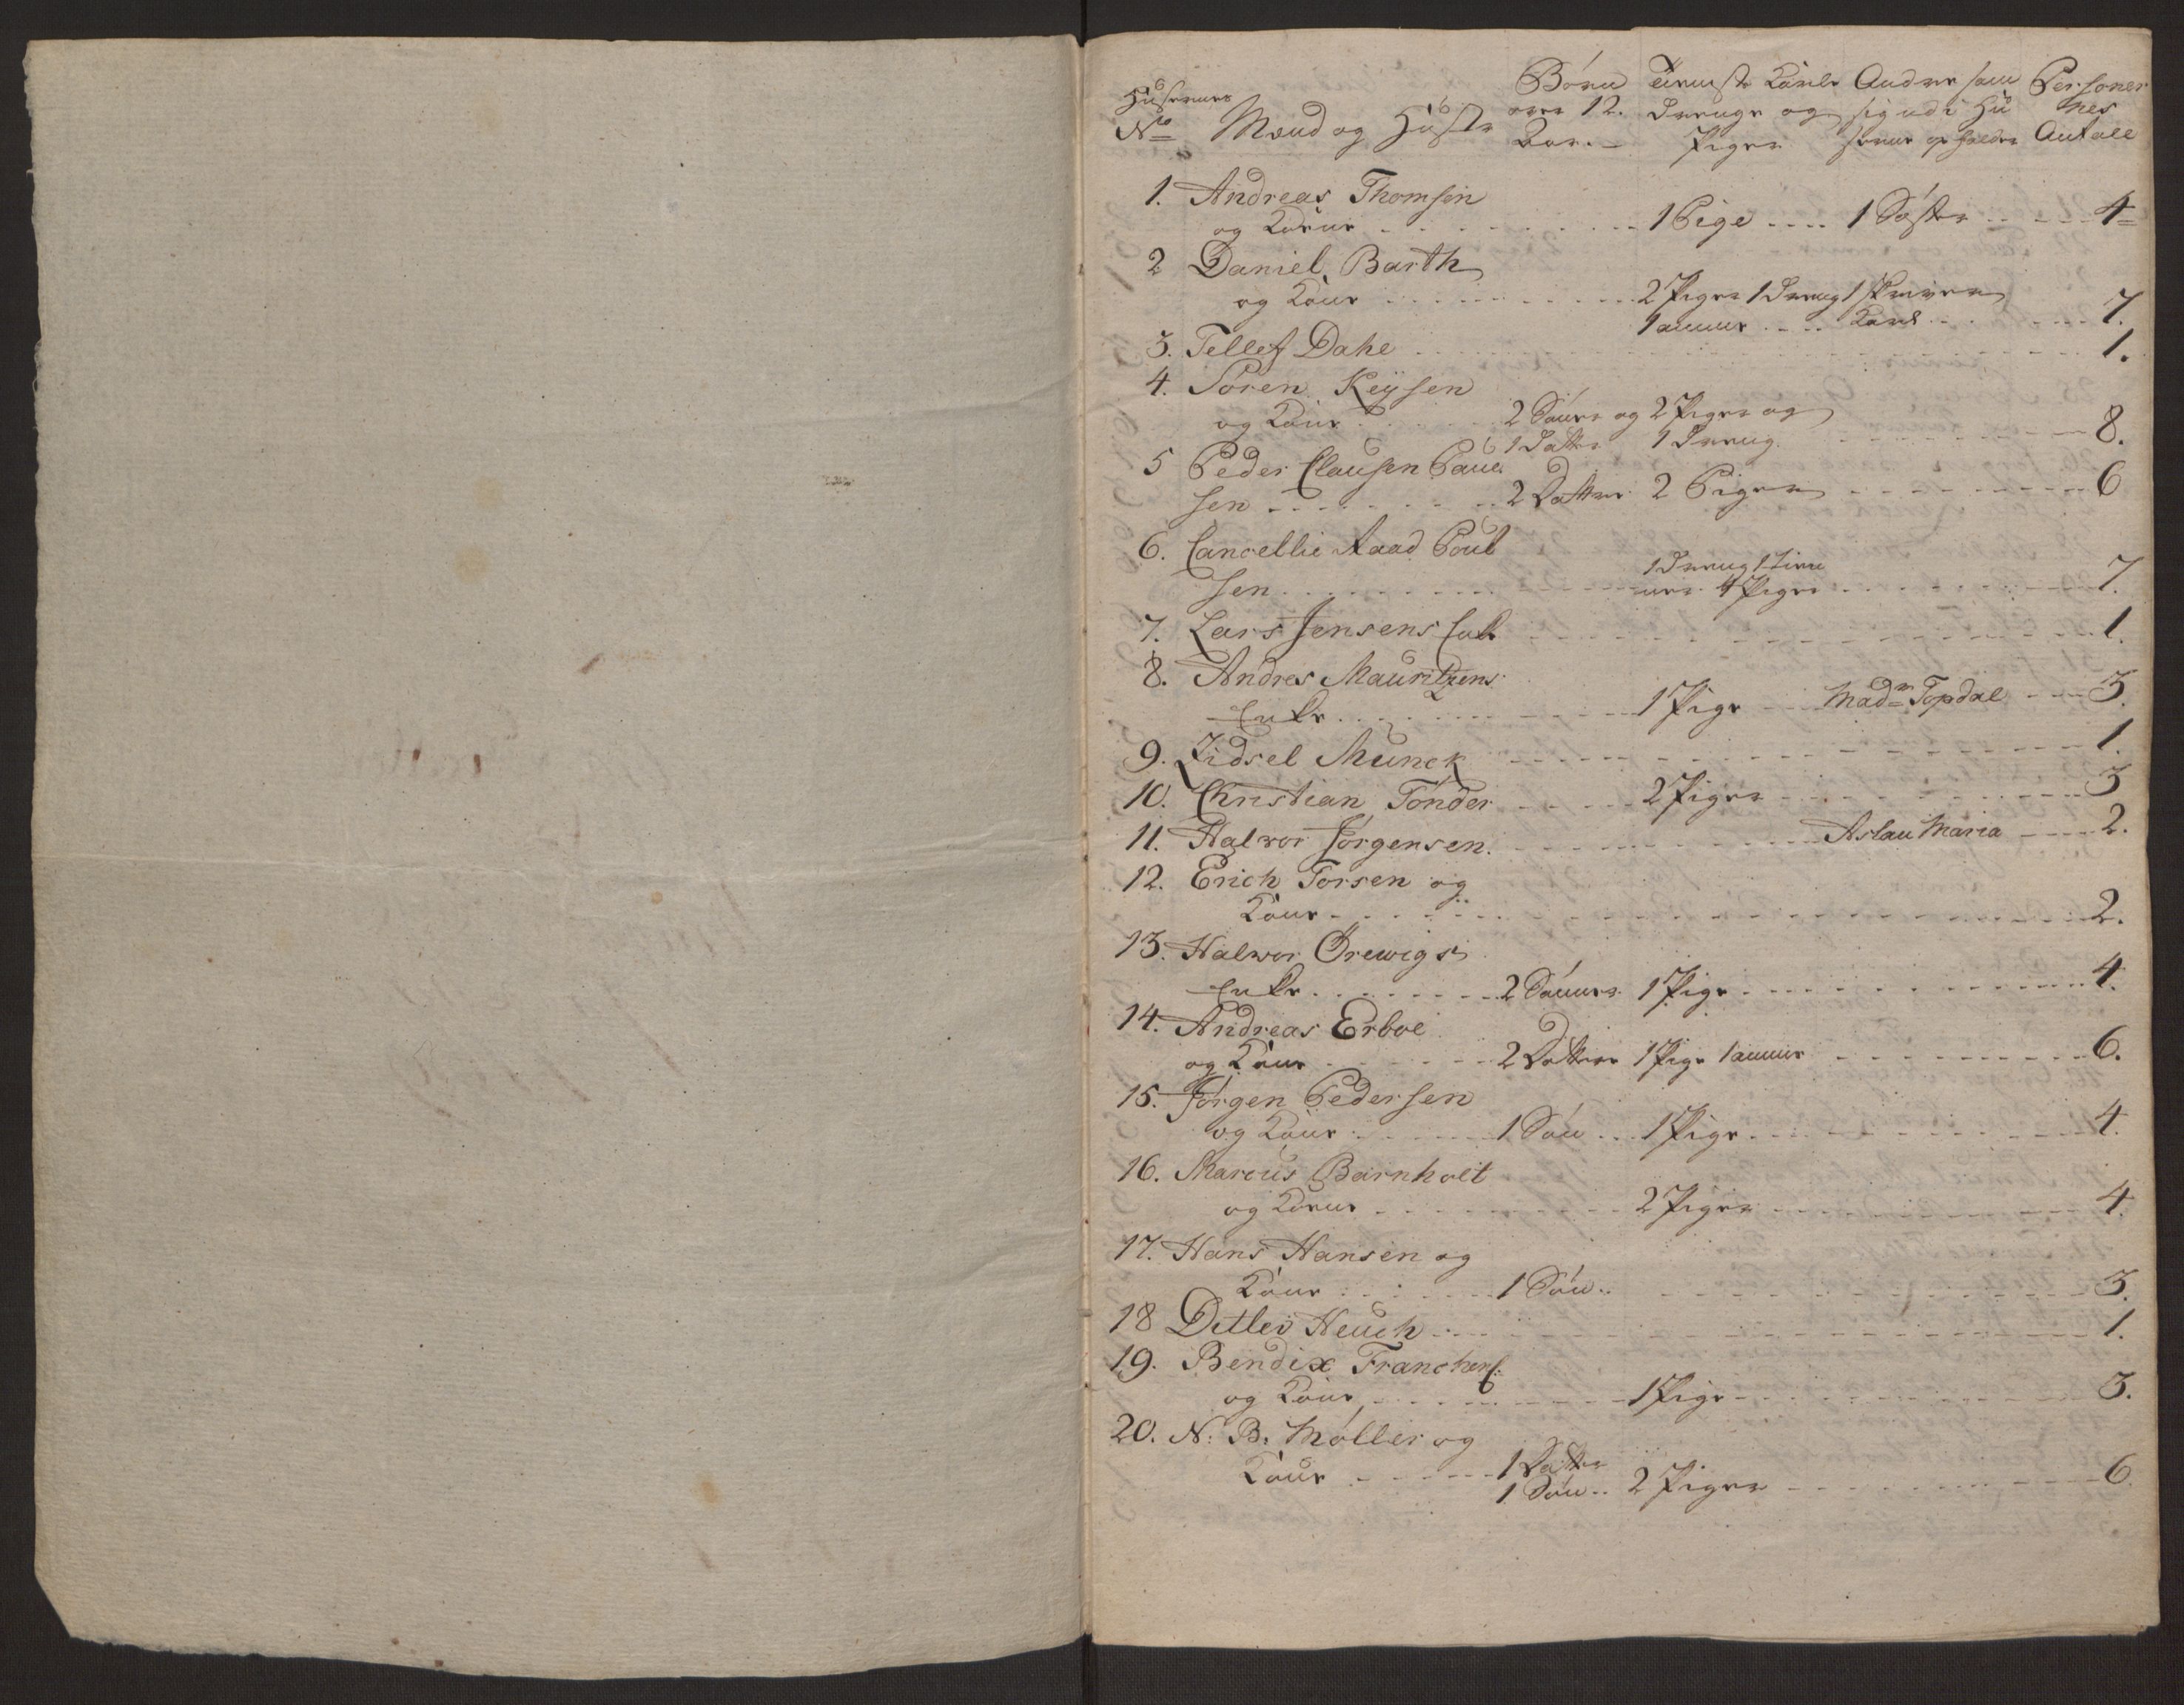 Husernes No Mænd og Hustr Børn over 12. Aar. Tienste Karle Drenge og Piger Andre som sig udi Husene opholder Personernes Antall
1. Andreas Thomsen
og Kone 1 Pige 1 Søster 4
2 Daniel Barth
og Kone 2 Piger 1 Dreng 1 Skriver
1 amme Karl 7.
3. Tellef Dahl 1.
4. Søren Keysen
og Kone 2 Sønner og 2 Piger og
1 Datter 1 Dreng. 8.
5 Peder Clausen Paul
sen 2 Døttre 2 Piger 6
6. Cancellie Raad Poul
sen 1 Dreng 1 tien
ner 4 Piger 7.
7. Lars Jensens Enke 1.
8. Andres Mauritzens
Enke 1 Pige Madm Topdal 3.
9. Zidsel Munck 1.
10. Christian Tønder 2 Piger 3
11. Halvor Jørgensen. Aslau Maria 2.
12. Erich Torsen og
Kone 2.
13. Halvor Ørewigs
Enke 2 Sønner 1 Pige 4.
14. Andreas Erboe
og Kone 2 Døttre 1 Pige 1 amme 6.
15. Jørgen Pedersen
og Kone 1 Søn 1 Pige 4.
16. Marcus Barnholt
og Kone 2 Piger 4.
17. Hans Hansen og
Kone 1 Søn 3.
18 Ditlev Heuch 1.
19. Bendix Franchens:
og Kone 1 Pige 3.
20. N: B: Møller og
Kone 1 Datter
1 Søn 2 Piger 6.